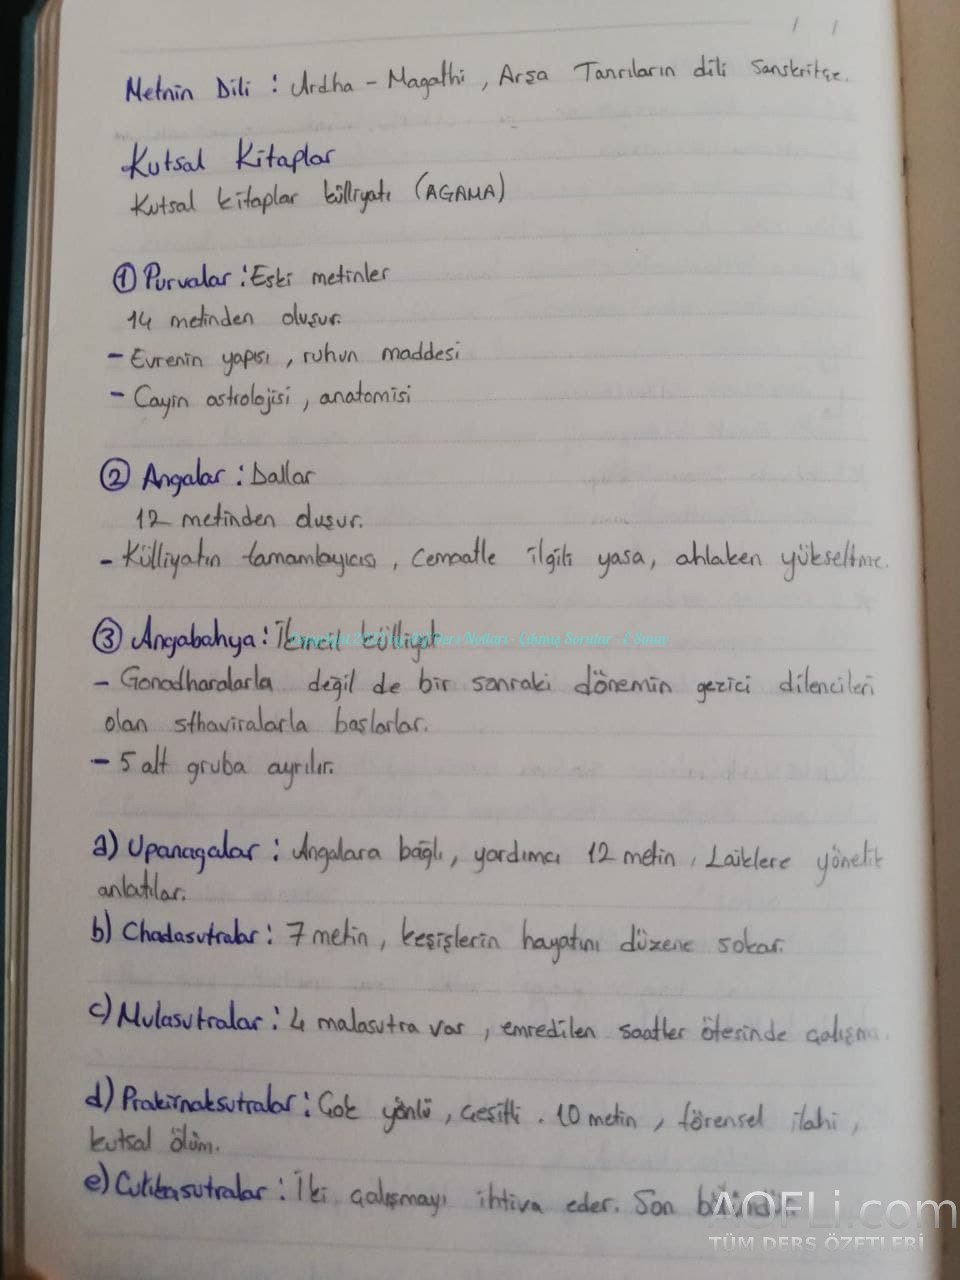 Metnin Dili : Ardha - Magathi , Arşa Tanrıların dili Sanskritçe.
Kutsal Kitaplar
Kutsal kitaplar külliyatı (AGAMA)
① Purvalar : Eski metinler
14 metinden oluşur.
- Evrenin yapısı , ruhun maddesi
- Cayin astrolojisi , anatomisi
② Angalar : Dallar
12 metinden oluşur.
- Külliyatın tamamlayıcısı , cemaatle ilgili yasa, ahlaken yükseltme.
③ Angabahya : İkincil külliyat
- Gonadharalarla değil de bir sonraki dönemin gezici dilencileri
olan sthaviralarla başlarlar.
- 5 alt gruba ayrılır.
a) Upanagalar : Angalara bağlı, yardımcı 12 metin , Laiklere yönelik
anlatılar.
b) Chadasutralar : 7 metin , keşişlerin hayatını düzene sokar.
c) Mulasutralar : 4 malasutra var , emredilen saatler ötesinde çalışma.
d) Prakirnaksutralar : Çok yönlü , çeşitli . 10 metin , törensel ilahi ,
kutsal ölüm.
e) Culikasutralar : İki çalışmayı ihtiva eder. Son bölümdür.
AOFLi.com
TÜM DERS ÖZETLERİ